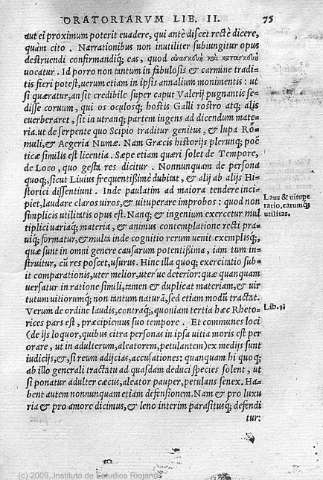 ORATORIARVM LIB. II. 75
aut ei proximum poterit euadere, qui antè didicerit rectè dicere,
quàm cito. Narrationibus non inutiliter subiungitur opus
destruendi confirmandiq́; eas, quod ἀνασκευὴ καὶ κατασκευὴ
vocatur. Id porro non tantum in fabulosis & carmine traditis
fieri potest, verum etiam in ipsis annalium monimentis: ut
si quæratur, an sit credibile super caput Valerij pugnantis sedisse
coruum, qui os oculosq́; hostis Galli rostro atq; alis
euerberaret, sit in utranq; partem ingens ad dicendum materia.
ut de serpente quo Scipio traditur genitus, & lupa Romuli,
& Aegeria Numæ. Nam Græcis historijs plerunq; poëticæ
similis est licentia. Sæpe etiam quæri solet de Tempore,
de Loco, quo gesta res dicitur. Nonnunquam de persona
quoq;, sicut Liuius frequentissimè dubitat, & alij ab alijs Historici
dissentiunt. Inde paulatim ad maiora tendere incipiet,
laudare claros uiros, & uituperare improbos: quod non
simplicis utilitatis opus est. Nanq; & ingenium exercetur multiplici
uariaq́; materia, & animus contemplatione recti prauiq́;
formatur, & multa inde cognitio rerum uenit exemplisq́;
quæ sunt in omni genere causarum potentissima, iam tum instruitur,
cũ res poscet, usurus. Hinc illa quoq; exercitatio subit
comparationis, uter melior, uter ue deterior: quæ quanquam
uersatur in ratione simili, tamen & duplicat materiam, & uirtutum
uitiorumq́; non tantum naturã, sed etiam modũ tractat.
Verum de ordine laudis, contraq́;, quoniam tertia hæc Rhetorices
pars est, præcipiemus suo tempore. Et communes loci
(de ijs loquor, quibus citra personas in ipsa uitia moris est perorare,
ut in adulterum, aleatorem, petulantem) ex medijs sunt
iudicijs, & si reum adijcias, accusationes: quanquam hi quoq;
ab illo generali tractatu ad quasdam deduci species solent, ut
si ponatur adulter cæcus, aleator pauper, petulans senex. Habent
autem nonnunquam etiam defensionem. Nam & pro luxuria
& pro amore dicimus, & leno interim parasitusq́; defenditur:
Laus & uitupe
ratio, earumq́;
utilitas.
Lib. 3
(c) 2009, Instituto de Estudios Riojanos